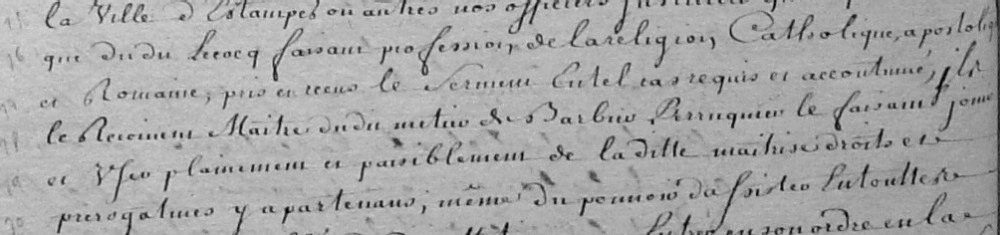 la Ville d'Estampes ou autres nos officiers
que dudu Lecocq faisant profession de la religion Catholique, apostolique
et Romaine, pris et receu le Serment En tel cas requis et accoutumé, ils
le Recoivent Maitre dudu metier de Barbier Perruquier le faisant jouir
et User plainement et paisiblement de la ditte maitrise droits et
prerogatives y apartenans, même du pouvoir d'assister En touttes
en son ordre en la